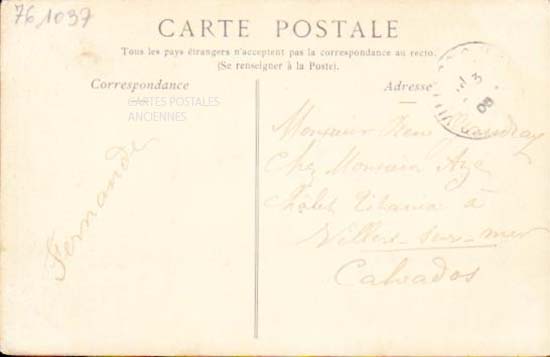 76 1037
CARTE POSTALE
Tous les pays étrangers n'acceptent pas la correspondance au recto.
(Se renseigner à la Poste).
Correspondance
Adresse
CARTES POSTALES
ANCIENNES
Fernande
Monsieur René
Chez Monsieur
Châlet Titania à
Villers-sur-mer
Calvados